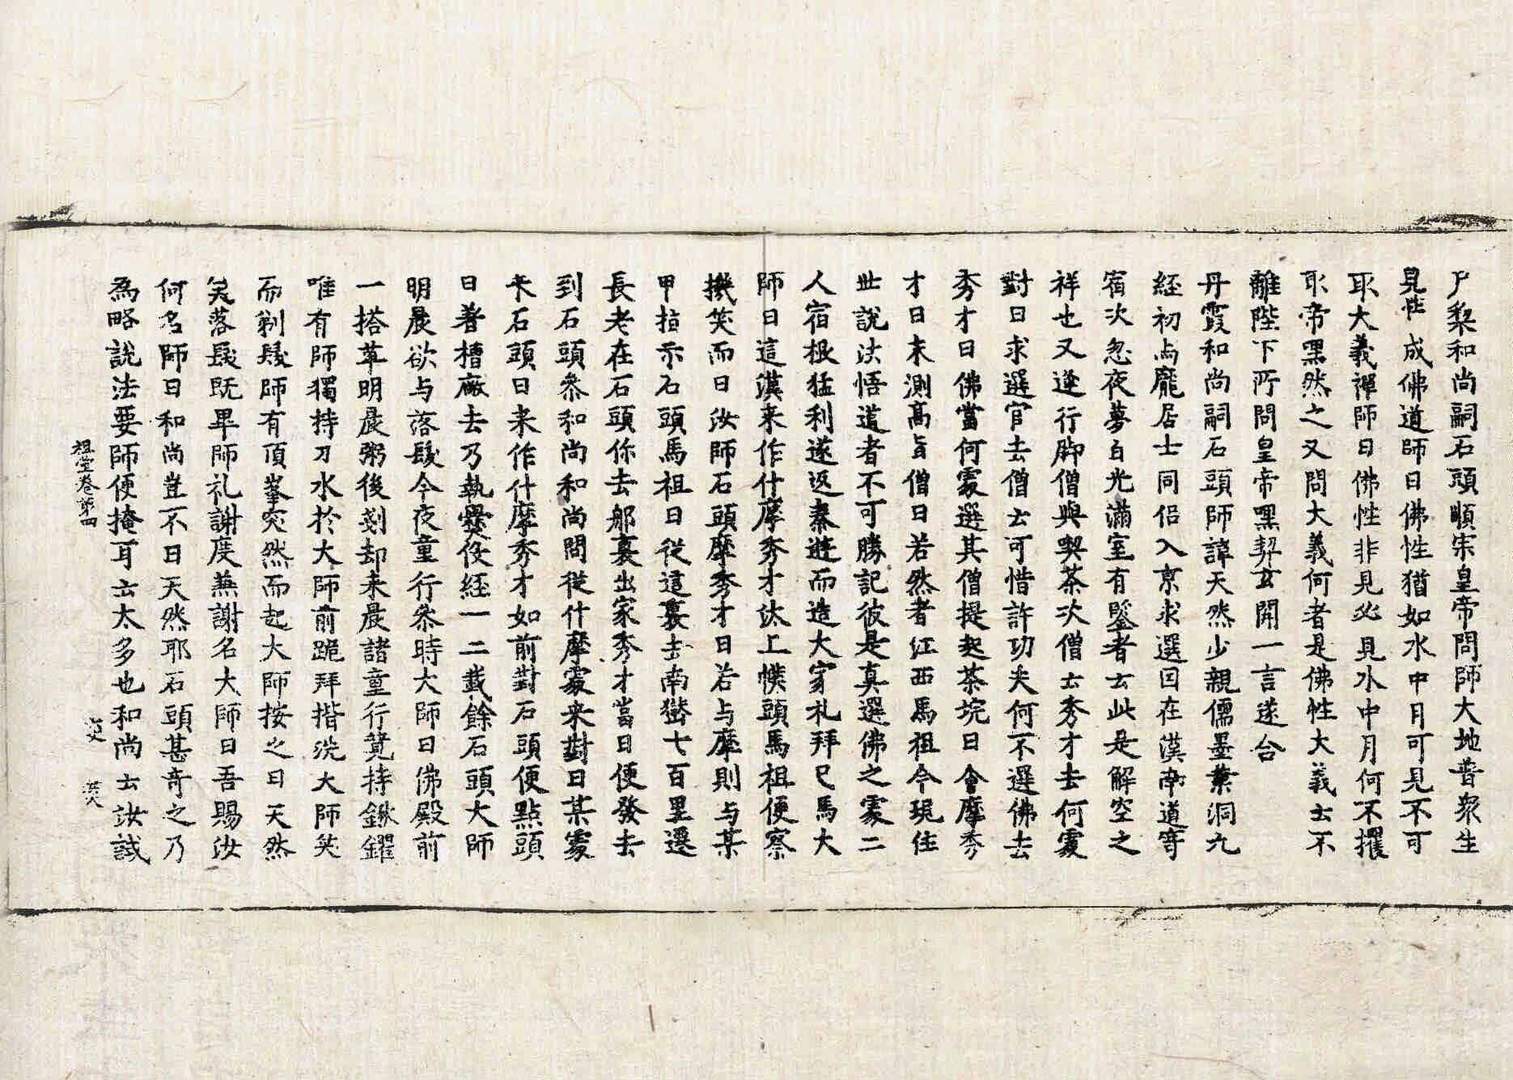 尸梨和尚嗣石頭順宗皇帝問師大地普衆生
見性成佛道師曰佛性猶如水中月可見不可
取大義禪師曰佛性非見必見水中月何不攫
取帝黑然之又問大義何者是佛性大義云不
離陛下所問皇帝黑契玄開一言遂合
丹霞和尚嗣石頭師諱天然少親儒墨業洞九
經初与龐居士同侶入京求選因在漢南道寄
宿次忽夜夢白光滿室有鑒者云此是解空之
祥也又逢行脚僧與喫茶次僧云秀才去何處
對曰求選官去僧云可惜許功夫何不選佛去
秀才曰佛當何處選其僧提起茶垸曰會摩秀
才曰未測高旨僧曰若然者江西馬祖今現住
世說法悟道者不可勝記彼是真選佛之處二
人宿根猛利遂返秦遊而造大寂礼拜已馬大
師曰這漢来作什摩秀才汰上幞頭馬祖便察
機笑而曰汝師石頭摩秀才曰若与摩則与某
甲指示石頭馬祖曰從這裏去南嶽七百里遷
長老在石頭你去那裏出家秀才當日便發去
到石頭叅和尚和尚問從什摩處来對曰某處
来石頭曰来作什摩秀才如前對石頭便點頭
曰著槽廠去乃執爨役經一二載餘石頭大師
明晨欲与落髮今夜童行叅時大師曰佛殿前
一搭草明晨粥後剗却来晨諸童行競持鍬钁
唯有師獨持刀水於大師前跪拜揩洗大師笑
而剃髮師有頂峯突然而起大師按之曰天然
矣落髮既畢師礼謝度兼謝名大師曰吾賜汝
何名師曰和尚豈不曰天然耶石頭甚奇之乃
為略說法要師便掩耳云太多也和尚云汝試
祖堂卷第四